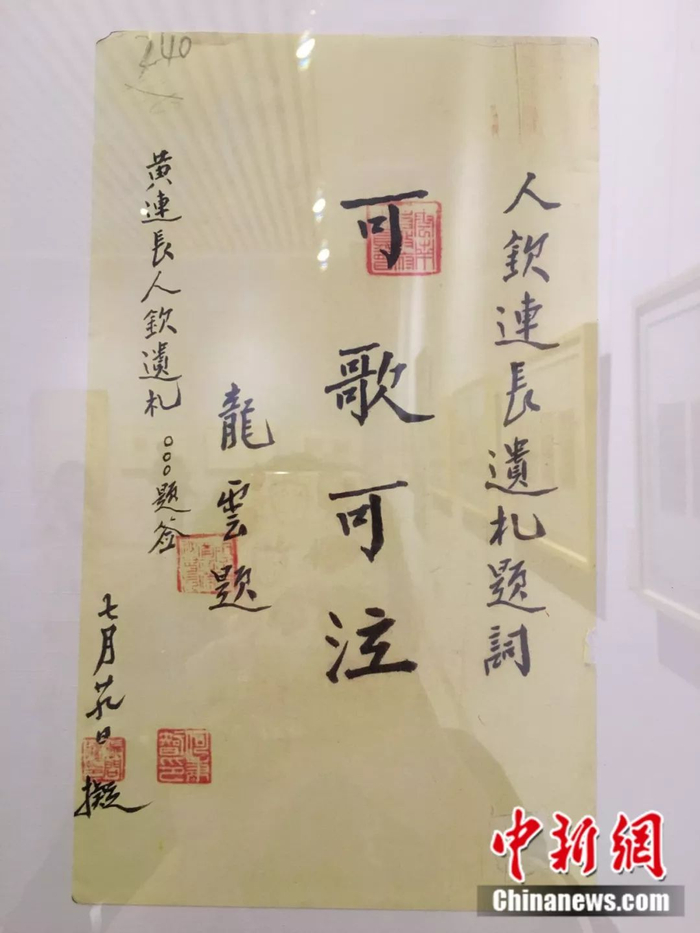 人欽連長遺札題詞
可歌可泣
龍雲題
黄連長人欽遺札 〇〇〇題签
七月廿九日
擬
240
中新網
Chinanews.com